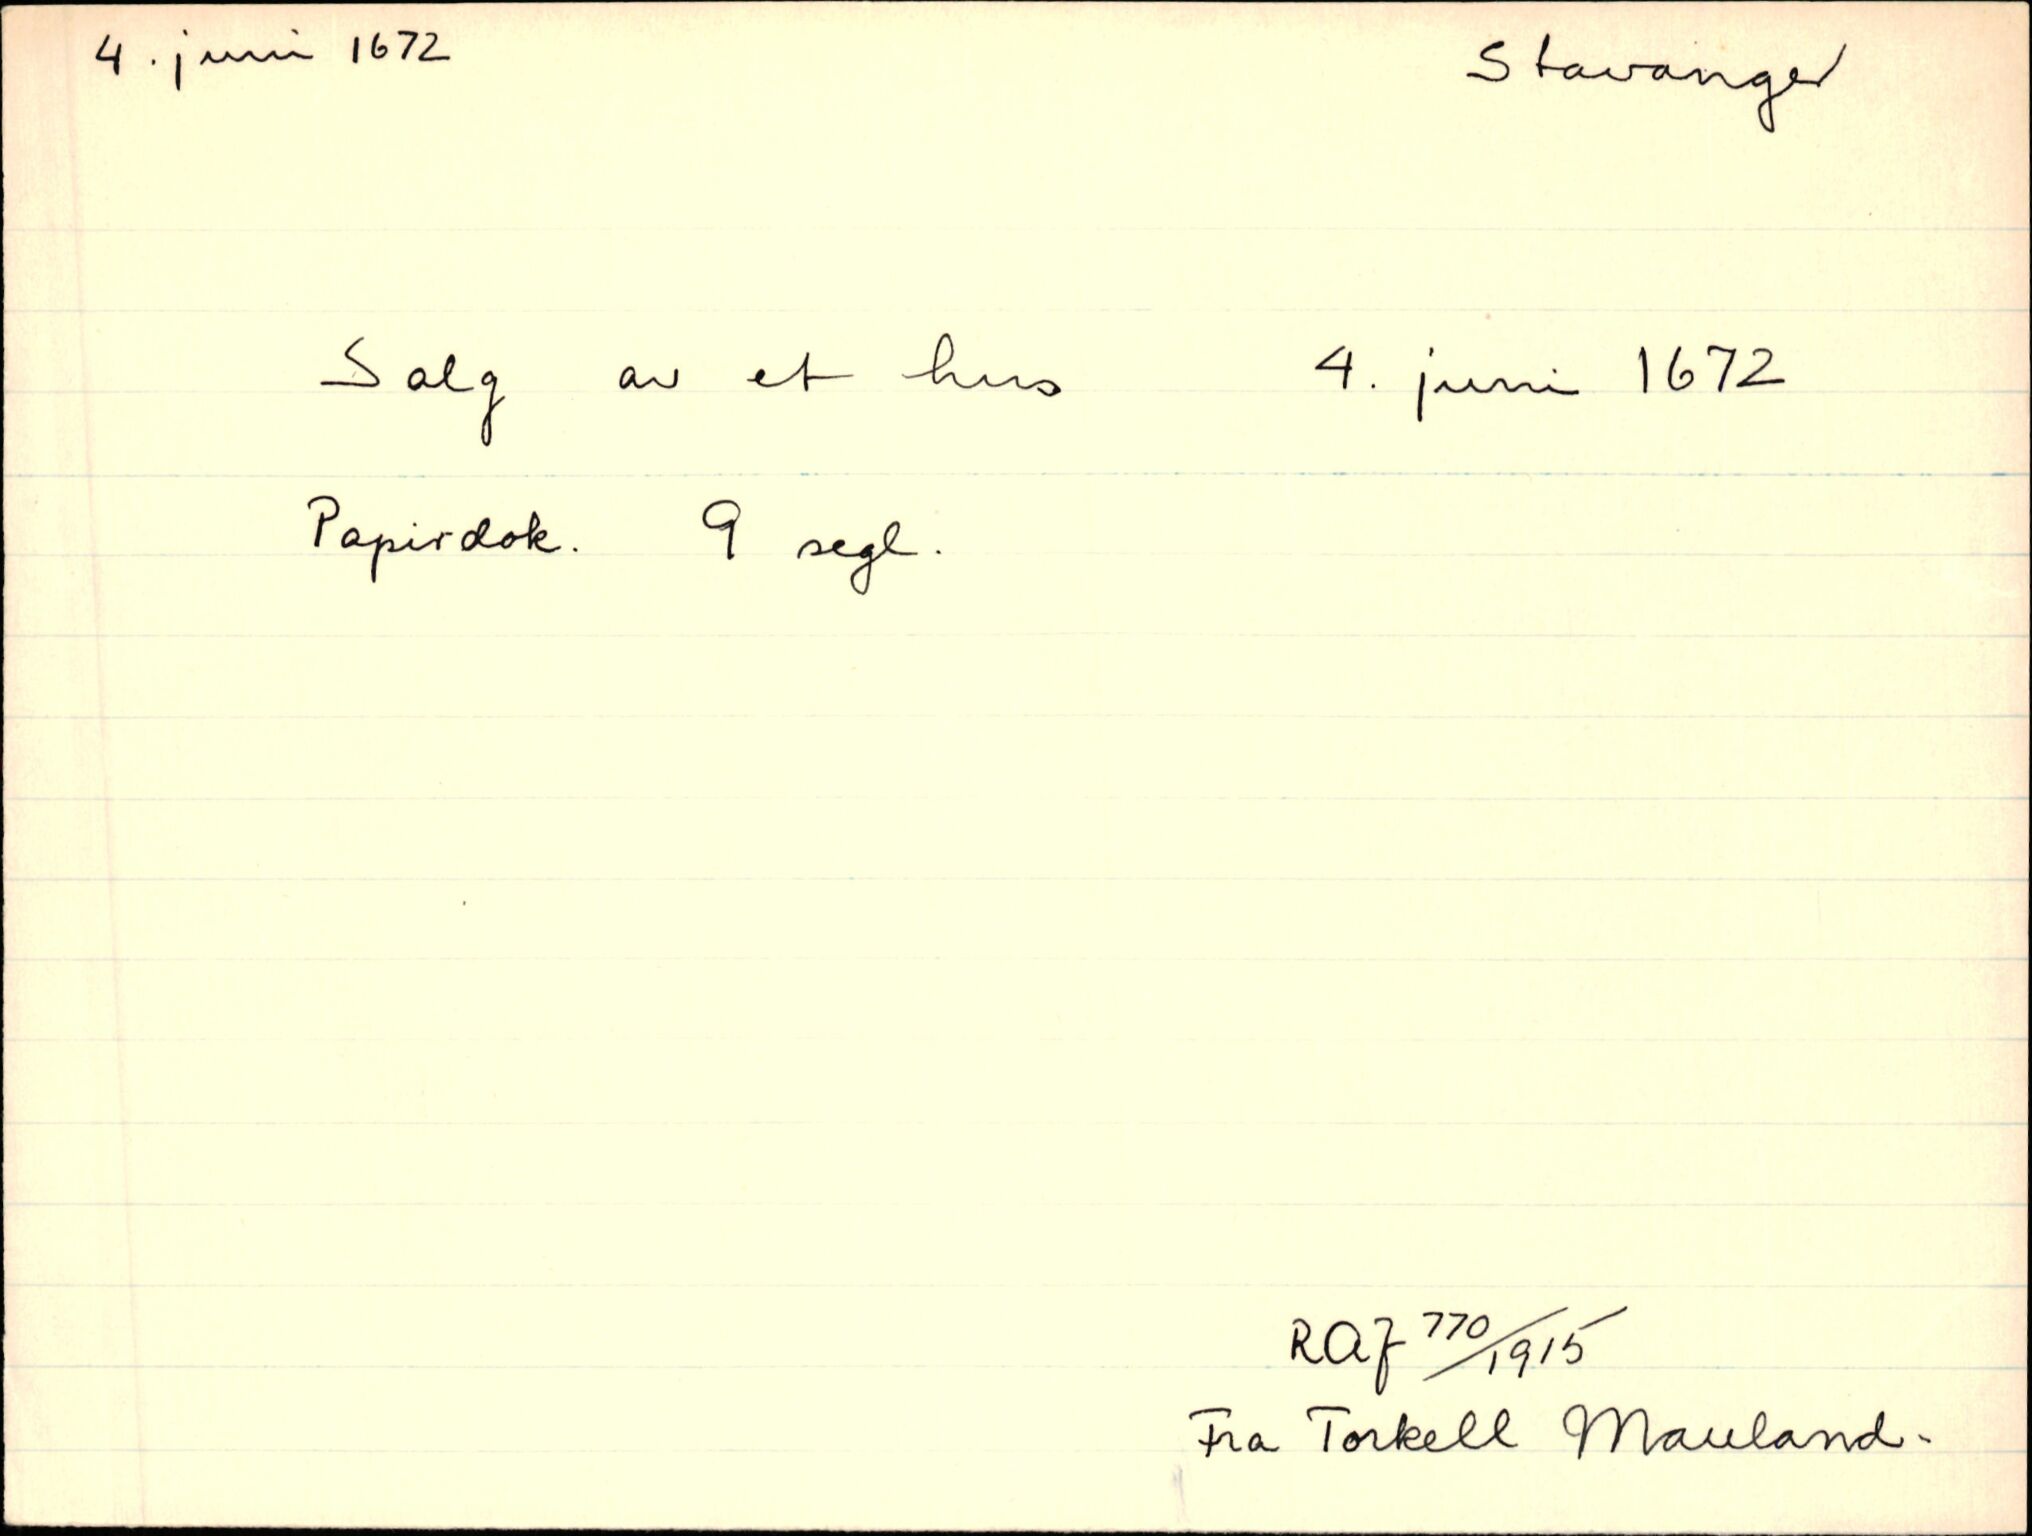 4. juni 1672 Stavanger
Salg av et hus 4. juni 1672
Papirdok. 9 segl.
RAJ 770/1915
Fra Torkell Mauland.